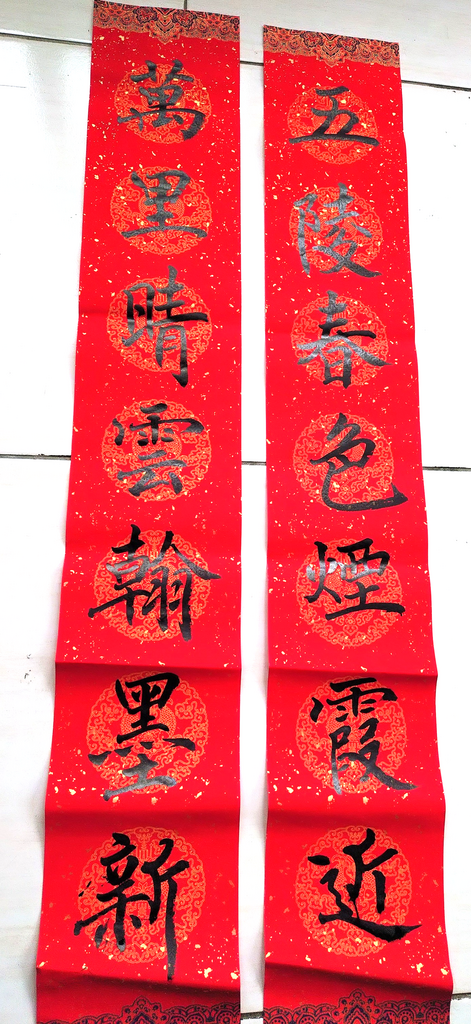 五陵春色煙霞近
萬里晴雲翰墨新